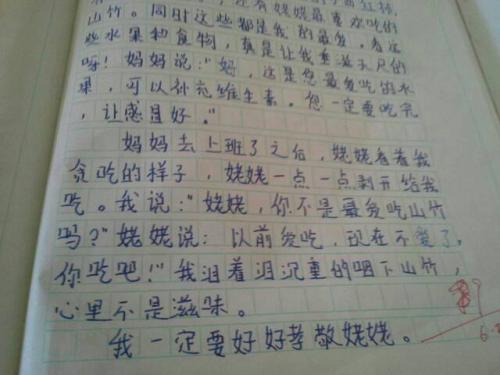 还有姥姥最喜欢吃的
山竹。同时这些都是我的最爱，看这
些水果和食物，真是让我垂涎三尺
呀！妈妈说：“妈，这是您最爱吃的水
果，可以补充维生素。您一定要吃完
，让感冒好。”
妈妈去上班了之后，姥姥看着我
贪吃的样子，姥姥一点一点剥开给我
吃。我说：“姥姥，你不是最爱吃山竹
吗？”姥姥说：以前爱吃，现在不爱了。
你吃吧！”我泪着泪沉重的咽下山竹，
心里不是滋味。
我一定要好好孝敬姥姥。